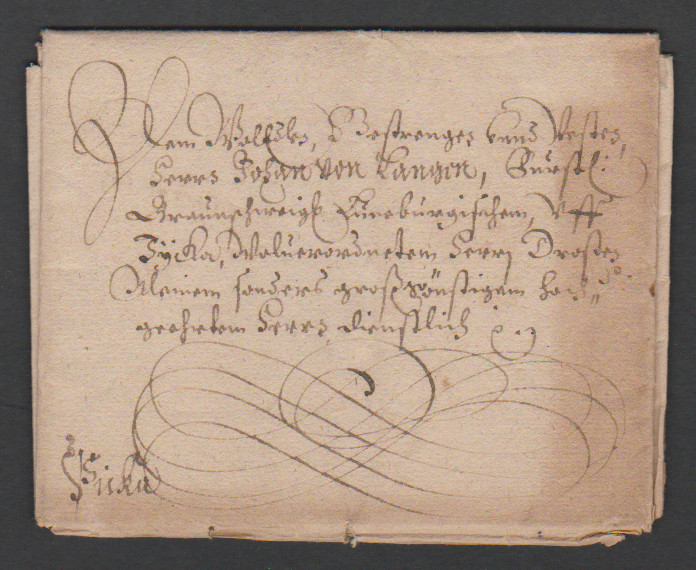 Dem WollEdlen, Gestrengen vnnd Vesten,
Herrn Johan von Langen, Fürstl:
Braunschweigl Lüneburgischem, Vff
Zÿcka, Wolverordnetem Herrn Drosten
Meinem sonders großgünstigem hoch
geehrtem Herrn, dienstlich